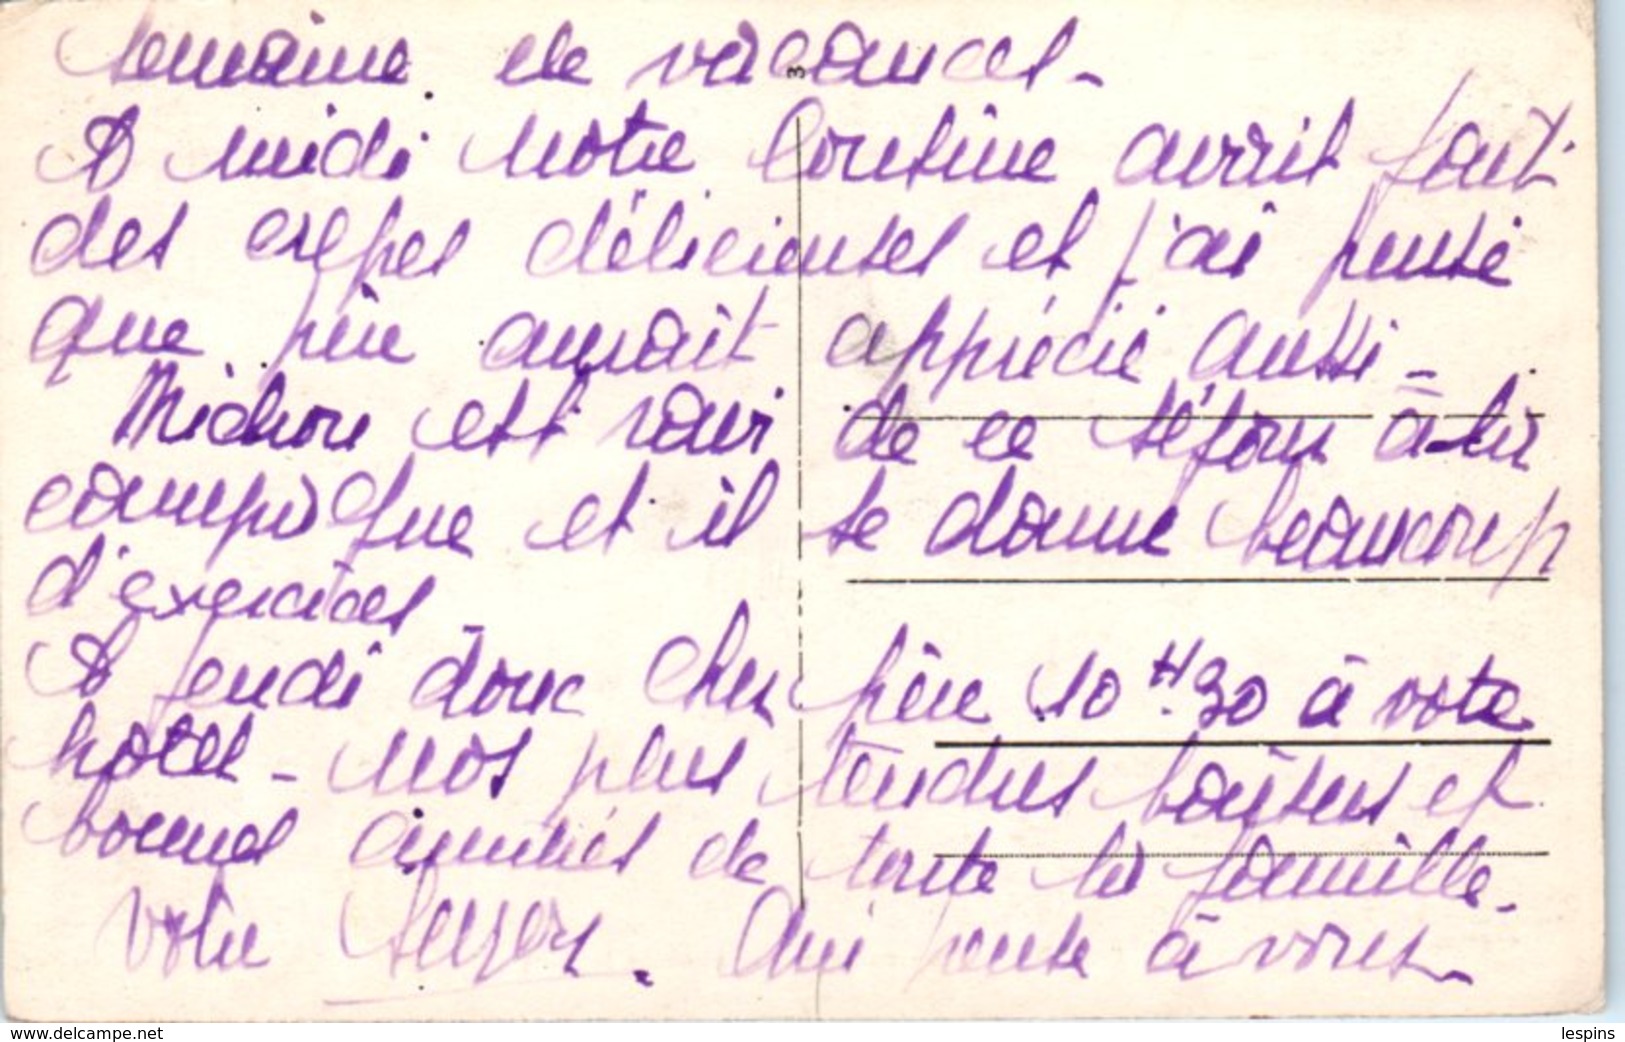 semaine de vacances -
A midi notre cousine avait fait
des crêpes délicieuses et j'ai pensé
que père aurait apprécié aussi -
Michou est ravi de ce séjour à la
campagne et il se donne beaucoup
d'exercices -
A jeudi donc cher père 10H30 à votre
hôtel - Nos plus tendres baisers et
bonnes amitiés de toute la famille -
votre qui pense à vous -
3
www.delcampe.net
lespins